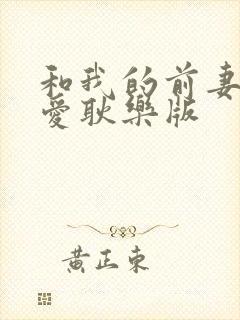 和我的前妻
愛耿樂版
黃正東